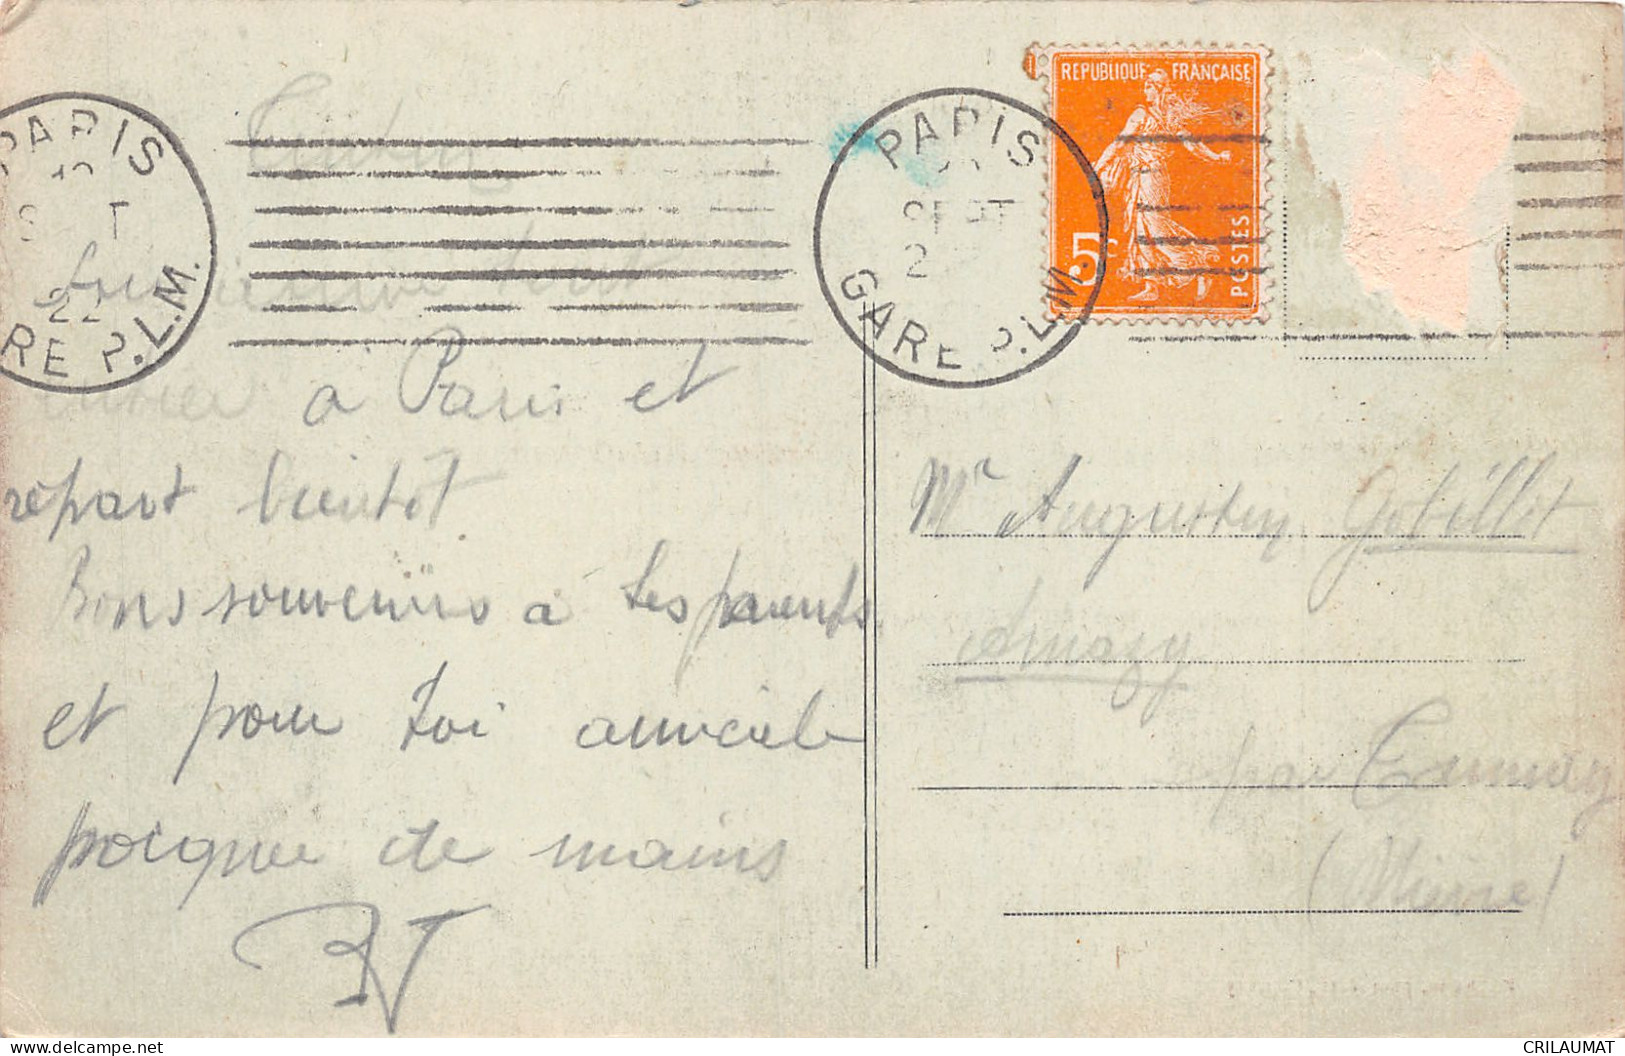 PARIS
22
GARE P.L.M.
PARIS
SEPT
2
GARE P.L.M.
REPUBLIQUE FRANÇAISE
5c
POSTES
à Paris et
repart bientôt
Bons souvenirs à tes parents
et pour toi amicale
poignée de mains
Mr Augustin Gobillot
Amazy
par Tannay
(Nièvre)
CRILAUMAT